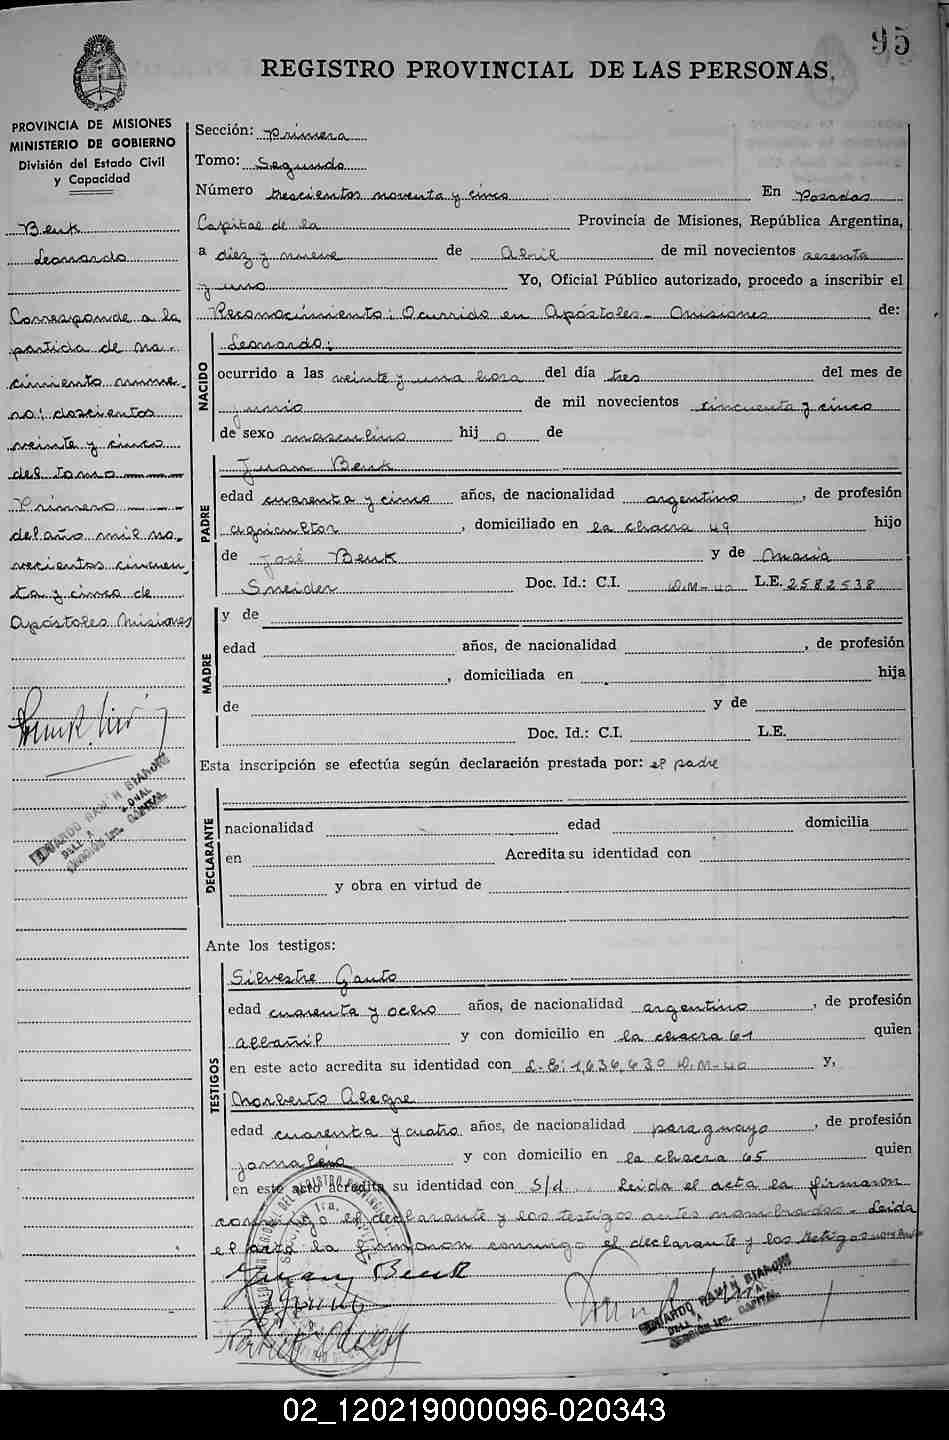 95
REGISTRO PROVINCIAL DE LAS PERSONAS.
PROVINCIA DE MISIONES
MINISTERIO DE GOBIERNO
División del Estado Civil
y Capacidad
Beuk
Leonardo
Corresponde a la
partida de na-
cimiento nume-
ro: doscientos
veinte y cinco
del tomo
Primero
del año mil no-
vecientos cincuen-
ta y cinco de
Apóstoles Misiones
Sección: Primera
Tomo: Segundo
Número trescientos noventa y cinco En Posadas
Capital de la Provincia de Misiones, República Argentina,
a diez y nueve de Abril de mil novecientos sesenta
y uno Yo, Oficial Público autorizado, procedo a inscribir el
Reconocimiento: Ocurrido en Apóstoles - Misiones de:
NACIDO
Leonardo:
ocurrido a las veinte y una hora del día tres del mes de
junio de mil novecientos cincuenta y cinco
de sexo masculino hij o de
PADRE
Juan Beuk
edad cuarenta y cinco años, de nacionalidad argentino, de profesión
agricultor, domiciliado en la chacra 49 hijo
de José Beuk y de Maria
Sneider Doc. Id.: C.I. D.M-40 L.E. 2582538
MADRE
y de
edad años, de nacionalidad , de profesión
, domiciliada en hija
de y de
Doc. Id.: C.I. L.E.
Esta inscripción se efectúa según declaración prestada por: el padre
DECLARANTE
nacionalidad edad domicilia
en Acredita su identidad con
y obra en virtud de
Ante los testigos:
TESTIGOS
Silvestre Gauto
edad cuarenta y ocho años, de nacionalidad argentino, de profesión
albañil y con domicilio en la chacra 61 quien
en este acto acredita su identidad con L.E: 1,636,630 D.M-40 y,
Norberto Alegre
edad cuarenta y cuatro años, de nacionalidad paraguayo, de profesión
jornalero y con domicilio en la chacra 65 quien
en este acto acredita su identidad con S/d Leida el acta la firmaron
conmigo el declarante y los testigos antes nombrados - Leida
el acta la firmaron conmigo el declarante y los testigos
Juan Beuk
02_120219000096-020343